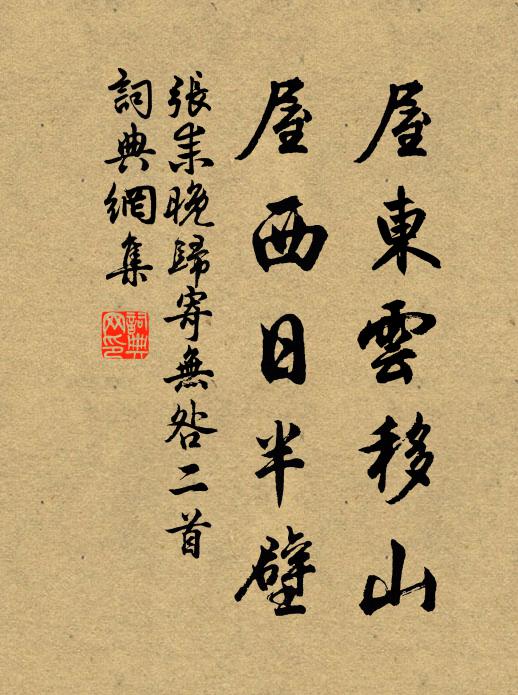 屋東雲移山
屋西日半壁
張耒晚歸寄無咎二首
詞典網集
詞典網印